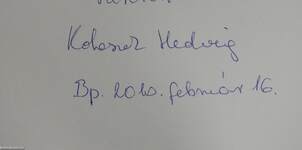 Kolosz Hedvig
Bp. 2020. február 16.